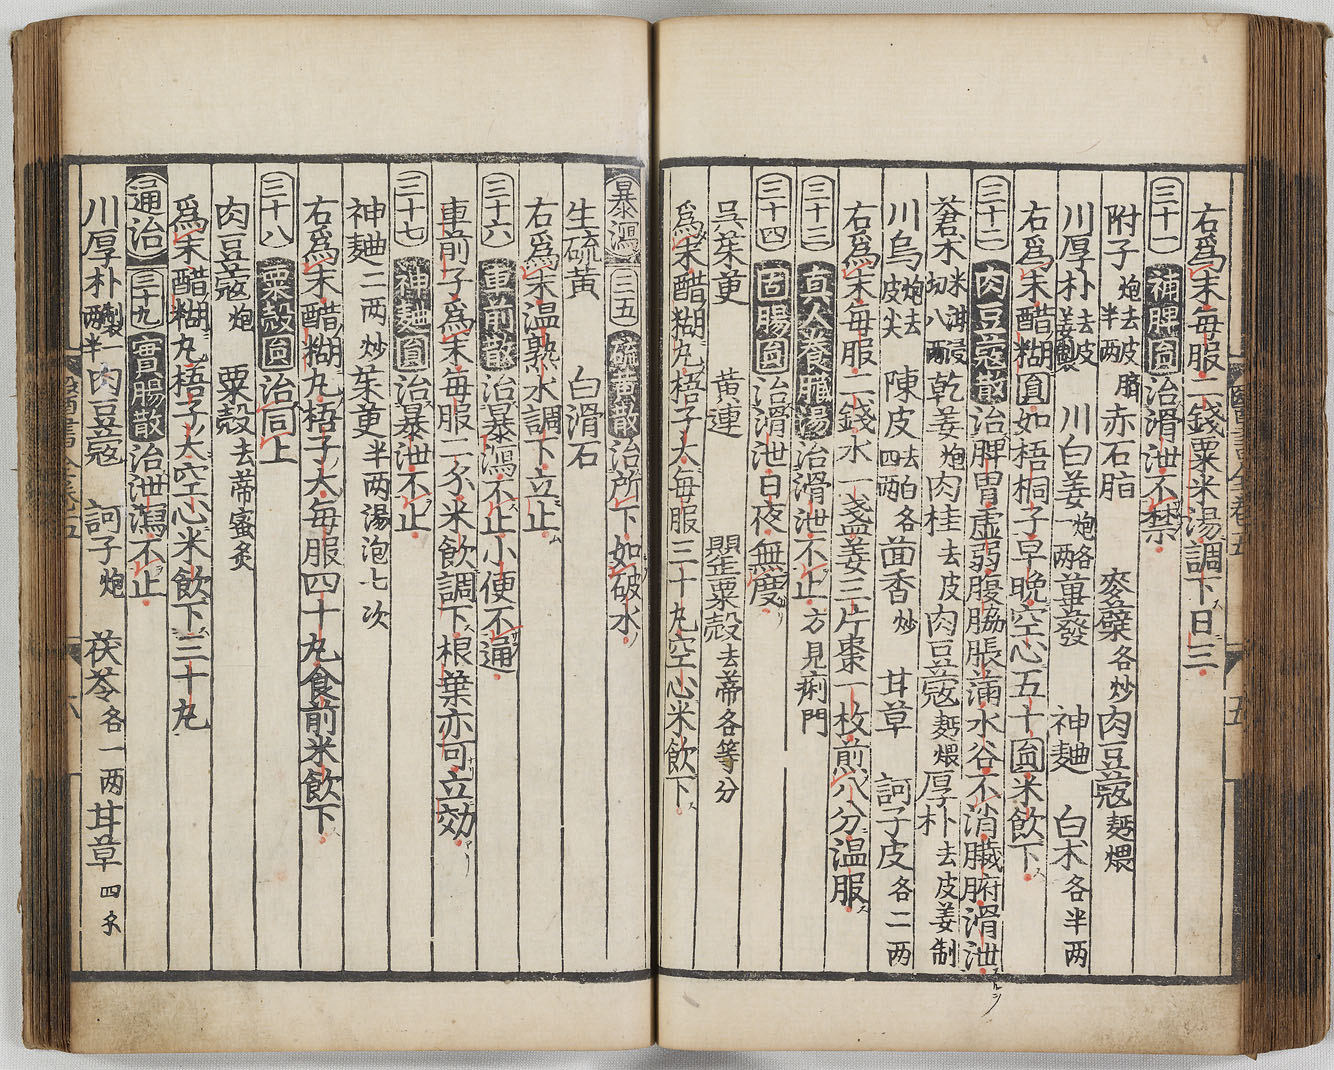 右爲末毎服二錢粟米湯調下日三
三十一 補脾圎 治滑泄不禁
附子炮去皮臍半两 赤石脂 麥蘖各炒 肉豆蔻麪煨
川厚朴去皮姜製 川白姜炮各一两 蓽發 神麯 白术各半两
右爲末醋糊圓如梧桐子早晩空心五十圎米飲下
三十二 肉豆蔻散 治脾胃虚弱腹脇脹滿水谷不消臟腑滑泄
蒼术米泔浸切八两 乾姜炮 肉桂去皮 肉豆蔻麪煨 厚朴去皮姜制
川烏炮去皮尖 陳皮去白各四两 茴香炒 甘草 訶子皮各二两
右爲末毎服二錢水一盞姜三片棗一枚煎八分温服
三十三 真人養臓湯 治滑泄不止 方見痢門
三十四 固腸圎 治滑泄日夜無度
吳茱萸 黄連 罌粟殼去蒂各等分
爲末醋糊丸梧子大毎服三十丸空心米飲下
暴瀉 三五 硫黄散 治所下如破水
生硫黄 白滑石
右爲末温熟水調下立止
三十六 車前散 治暴瀉不止小便不通
車前子爲末毎服二錢米飲調下根葉亦可立効
三十七 神麯圓 治暴泄不止
神麯二两炒 茱萸半两湯泡七次
右爲末醋糊丸梧子大毎服四十丸食前米飲下
三十八 粟殼圎 治同上
肉豆蔻炮 粟殼去蒂蜜炙
爲末醋糊丸梧子大空心米飲下三十丸
通治 三十九 實腸散 治泄瀉不止
川厚朴製一两半 肉豆蔻 訶子炮 茯苓各一两 甘草四錢